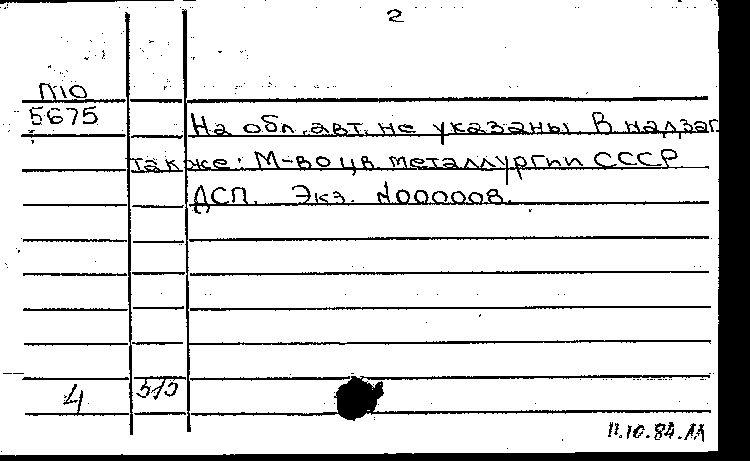 2
П10
5675
На обл. авт. не указаны. В надзаг
также: М-во цв. металлургии СССР
ДСП. Экз. №000008.
4
11.10.84.